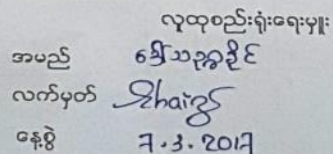 လူထုစည်းရုံးရေးမှူး
အမည် ဒေါ်သဥ္ဇာခိုင်
လက်မှတ်
နေ့စွဲ 7.3.2017